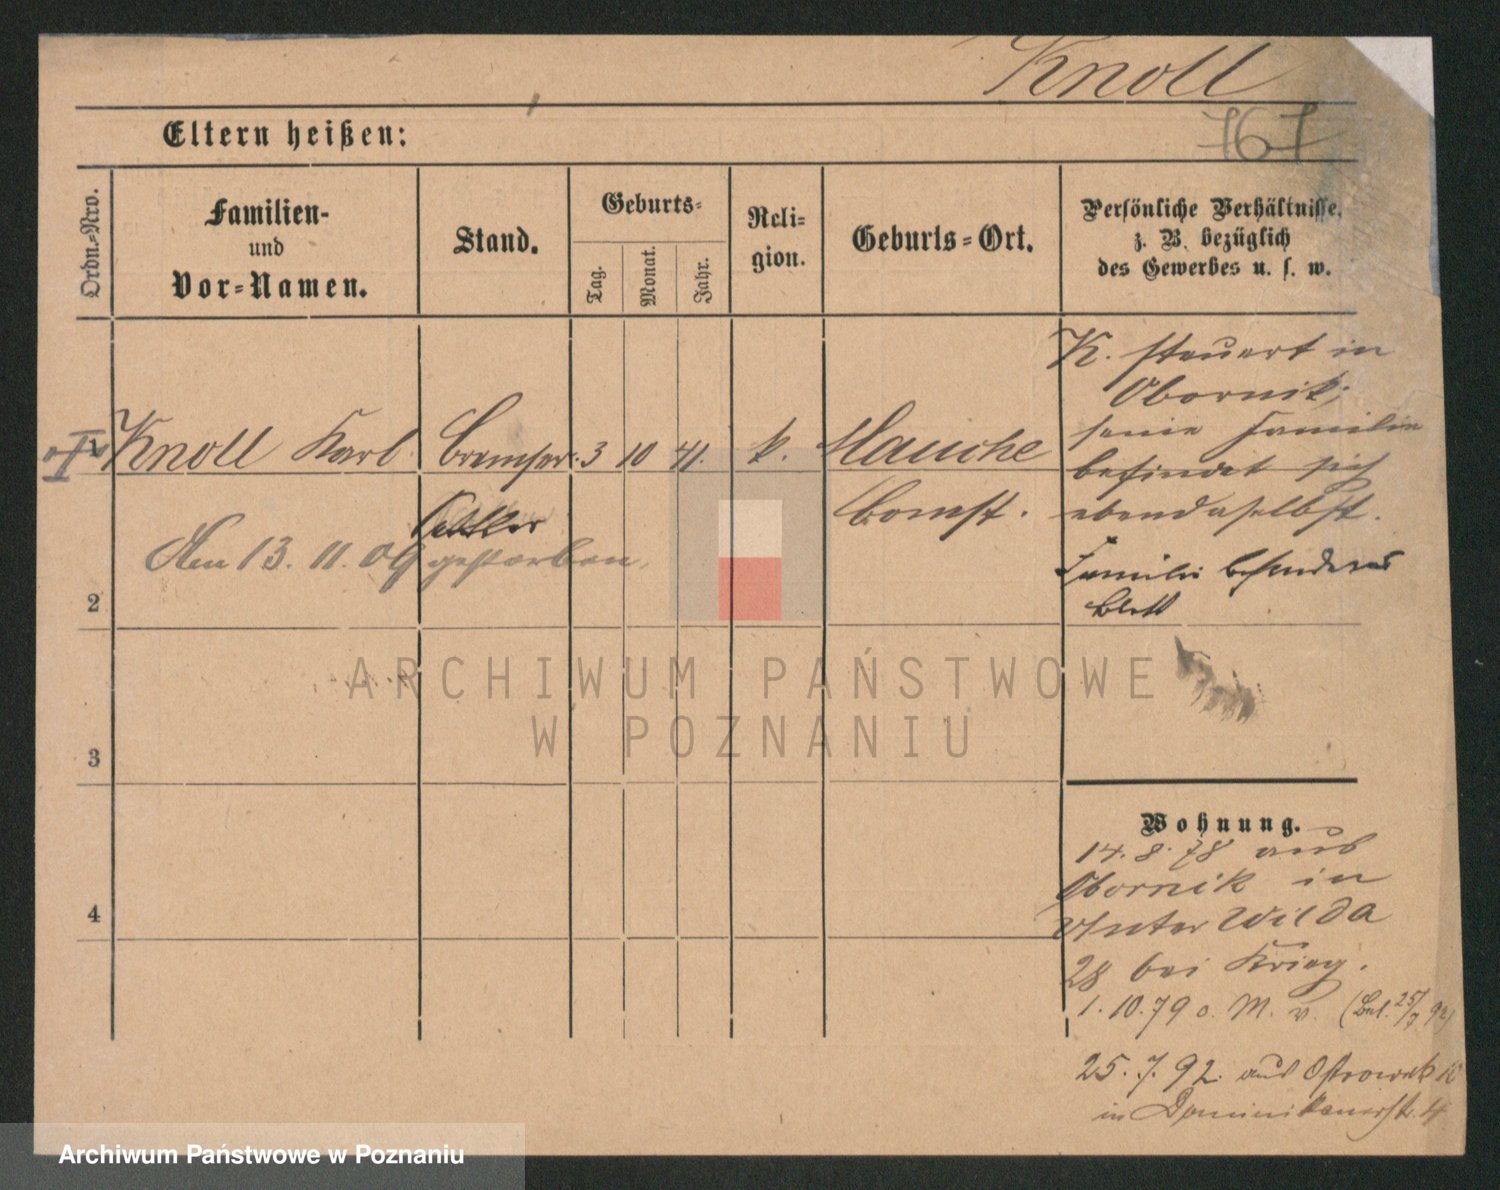 Knoll
767
Eltern heißen:
Ordn.-Nro.
Familien-
und
Vor-Namen.
Stand.
Geburts-
Tag.
Monat.
Jahr.
Reli-
gion.
Geburts-Ort.
Persönliche Verhältnisse,
z. B. bezüglich
des Gewerbes u. s. w.
K. steuert in
Obornik;
seine Familie
befindet sich
ebendaselbst.
Familie besonderes
Blatt
Knoll Karl 3 10 41. k. Mauche
Bomst.
Am 13. 11. 09 gestorben.
2
3
4
Wohnung.
14. 8. 78 aus
Obornik in
Unter Wilda
28 bei Krieg.
1. 10. 79 o. M. v. (Bel. 25/7 92)
25. 7. 92. aus Ostrowek
in Dominikanerstr. 4
ARCHIWUM PAŃSTWOWE
W POZNANIU
Archiwum Państwowe w Poznaniu